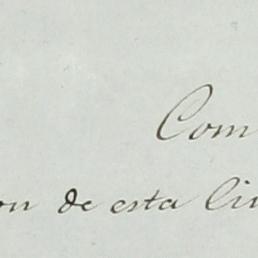 Com
on de esta Ciu